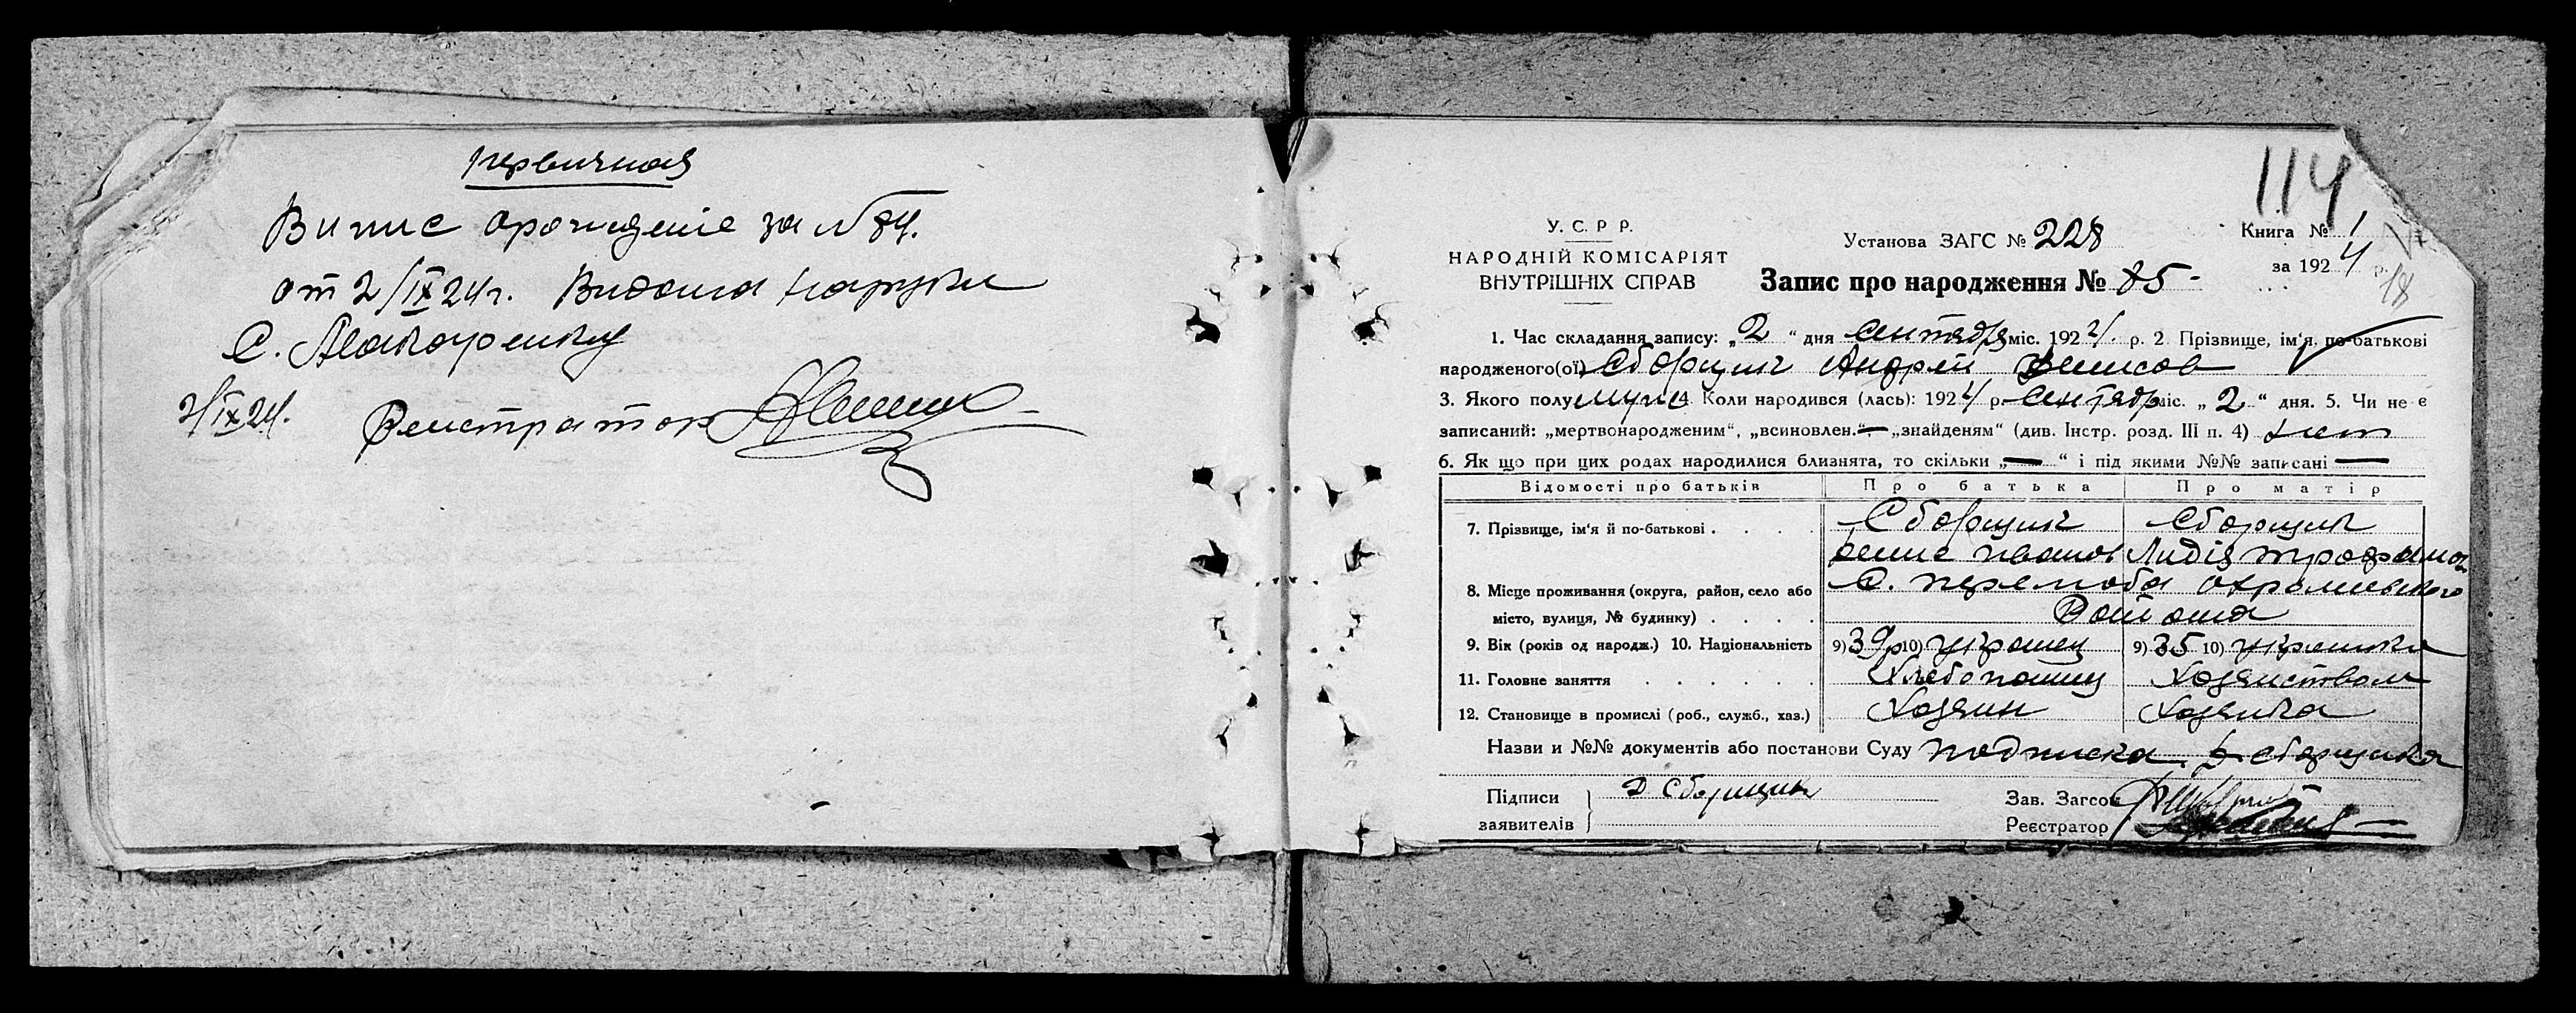 первичная
Випис орождение за № 84.
от 2/IX 24 г. Видана на руки
С. Макаренку
2/IX 24.
Реистратор
114
У. С. Р Р.
НАРОДНІЙ КОМІСАРІЯТ
ВНУТРІШНІХ СПРАВ
Установа ЗАГС № 228
Книга № 1
за 1924 р.
18
Запис про народження № 85 -
1. Час складання запису: „ 2 “ дня Сентября міс. 1924 р. 2 Прізвище, ім'я, по-батькові
народженого(ої) Сборщик Андрей Денисов
3. Якого полу муж 4 Коли народився (лась): 1924 р. Сентябр міс. „ 2 “ дня. 5. Чи не є
записаний: „мертвонародженим“, „всиновлен.“ — „знайденям“ (див. Інстр. розд. III п. 4) нет
6. Як що при цих родах народилися близнята, то скільки „ — “ і під якими №№ записані —
Відомості про батьків Про батька Про матір
7. Прізвище, ім'я й по-батькові . . . . Сборщик Сборщик
Денис Иванов Лидія Трофимов
8. Місце проживання (округа, район, село або С. Перемога
місто, вулиця, № будинку) . . . . Района
9. Вік (років од народж.) 10. Національність 9) 39 р 10) украинец 9) 35 10) украинка
11. Головне заняття . . . . . . Хлебопашец Хозяиством
12. Становище в промислі (роб., служб., хаз.) Хозяин Хозяика
Назви и №№ документів або постанови Суду подписка Д. Сборщика
Підписи
заявителів
Д Сборщик
Зав. Загсом
Реєстратор